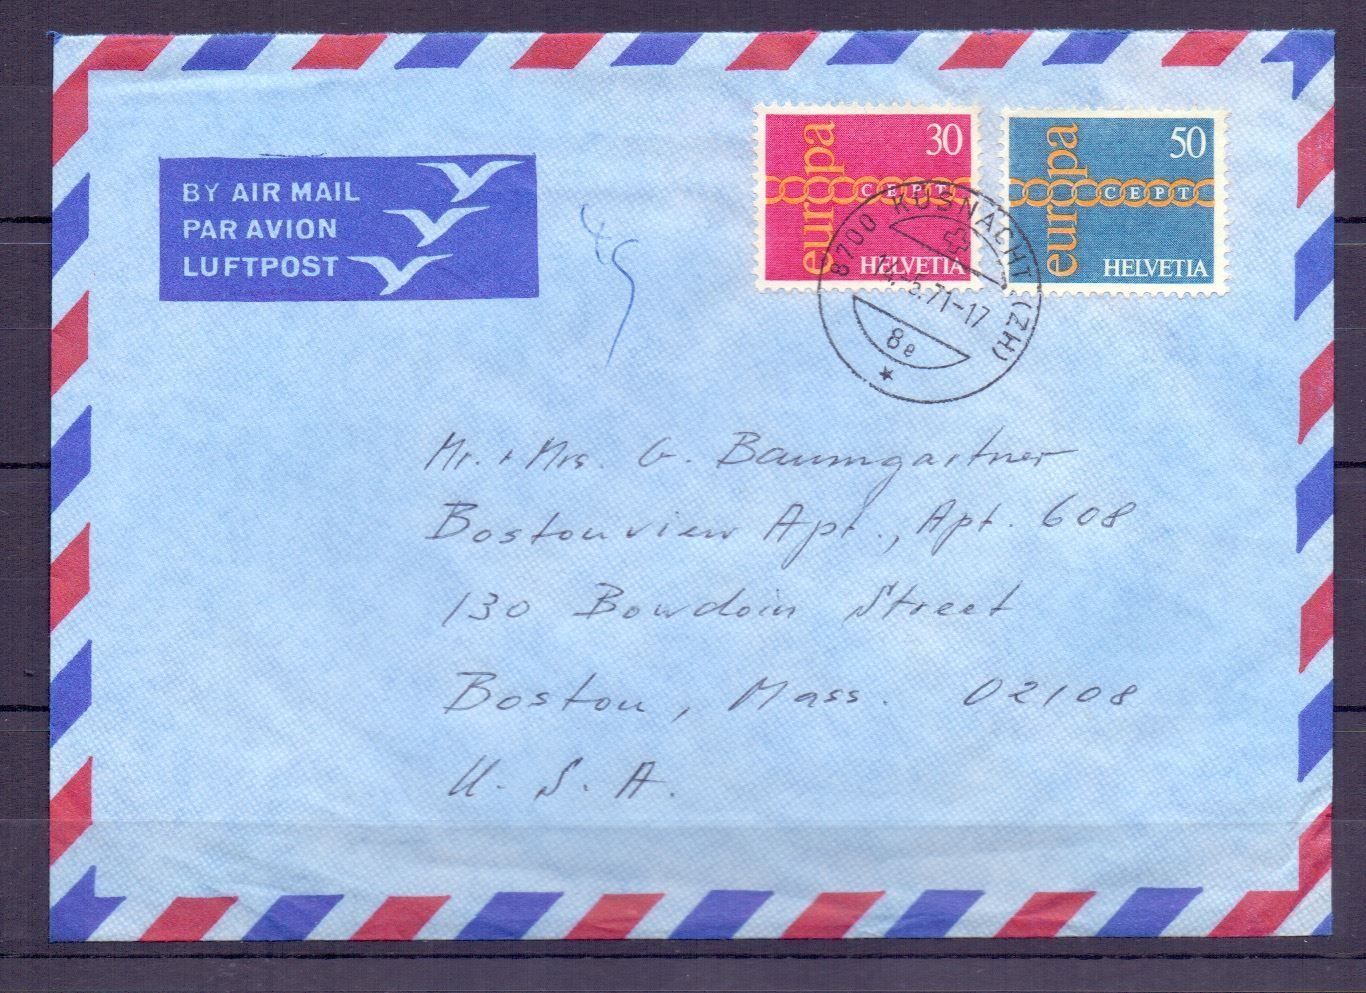 BY AIR MAIL
PAR AVION
LUFTPOST
europa
30
CEPT
HELVETIA
europa
50
CEPT
HELVETIA
8700 KÜSNACHT (ZH)
-5.71-17
8e
Mr. + Mrs. G. Baumgartner
Bostonview Apt., Apt. 608
130 Bowdoin Street
Boston, Mass. 02108
U. S. A.